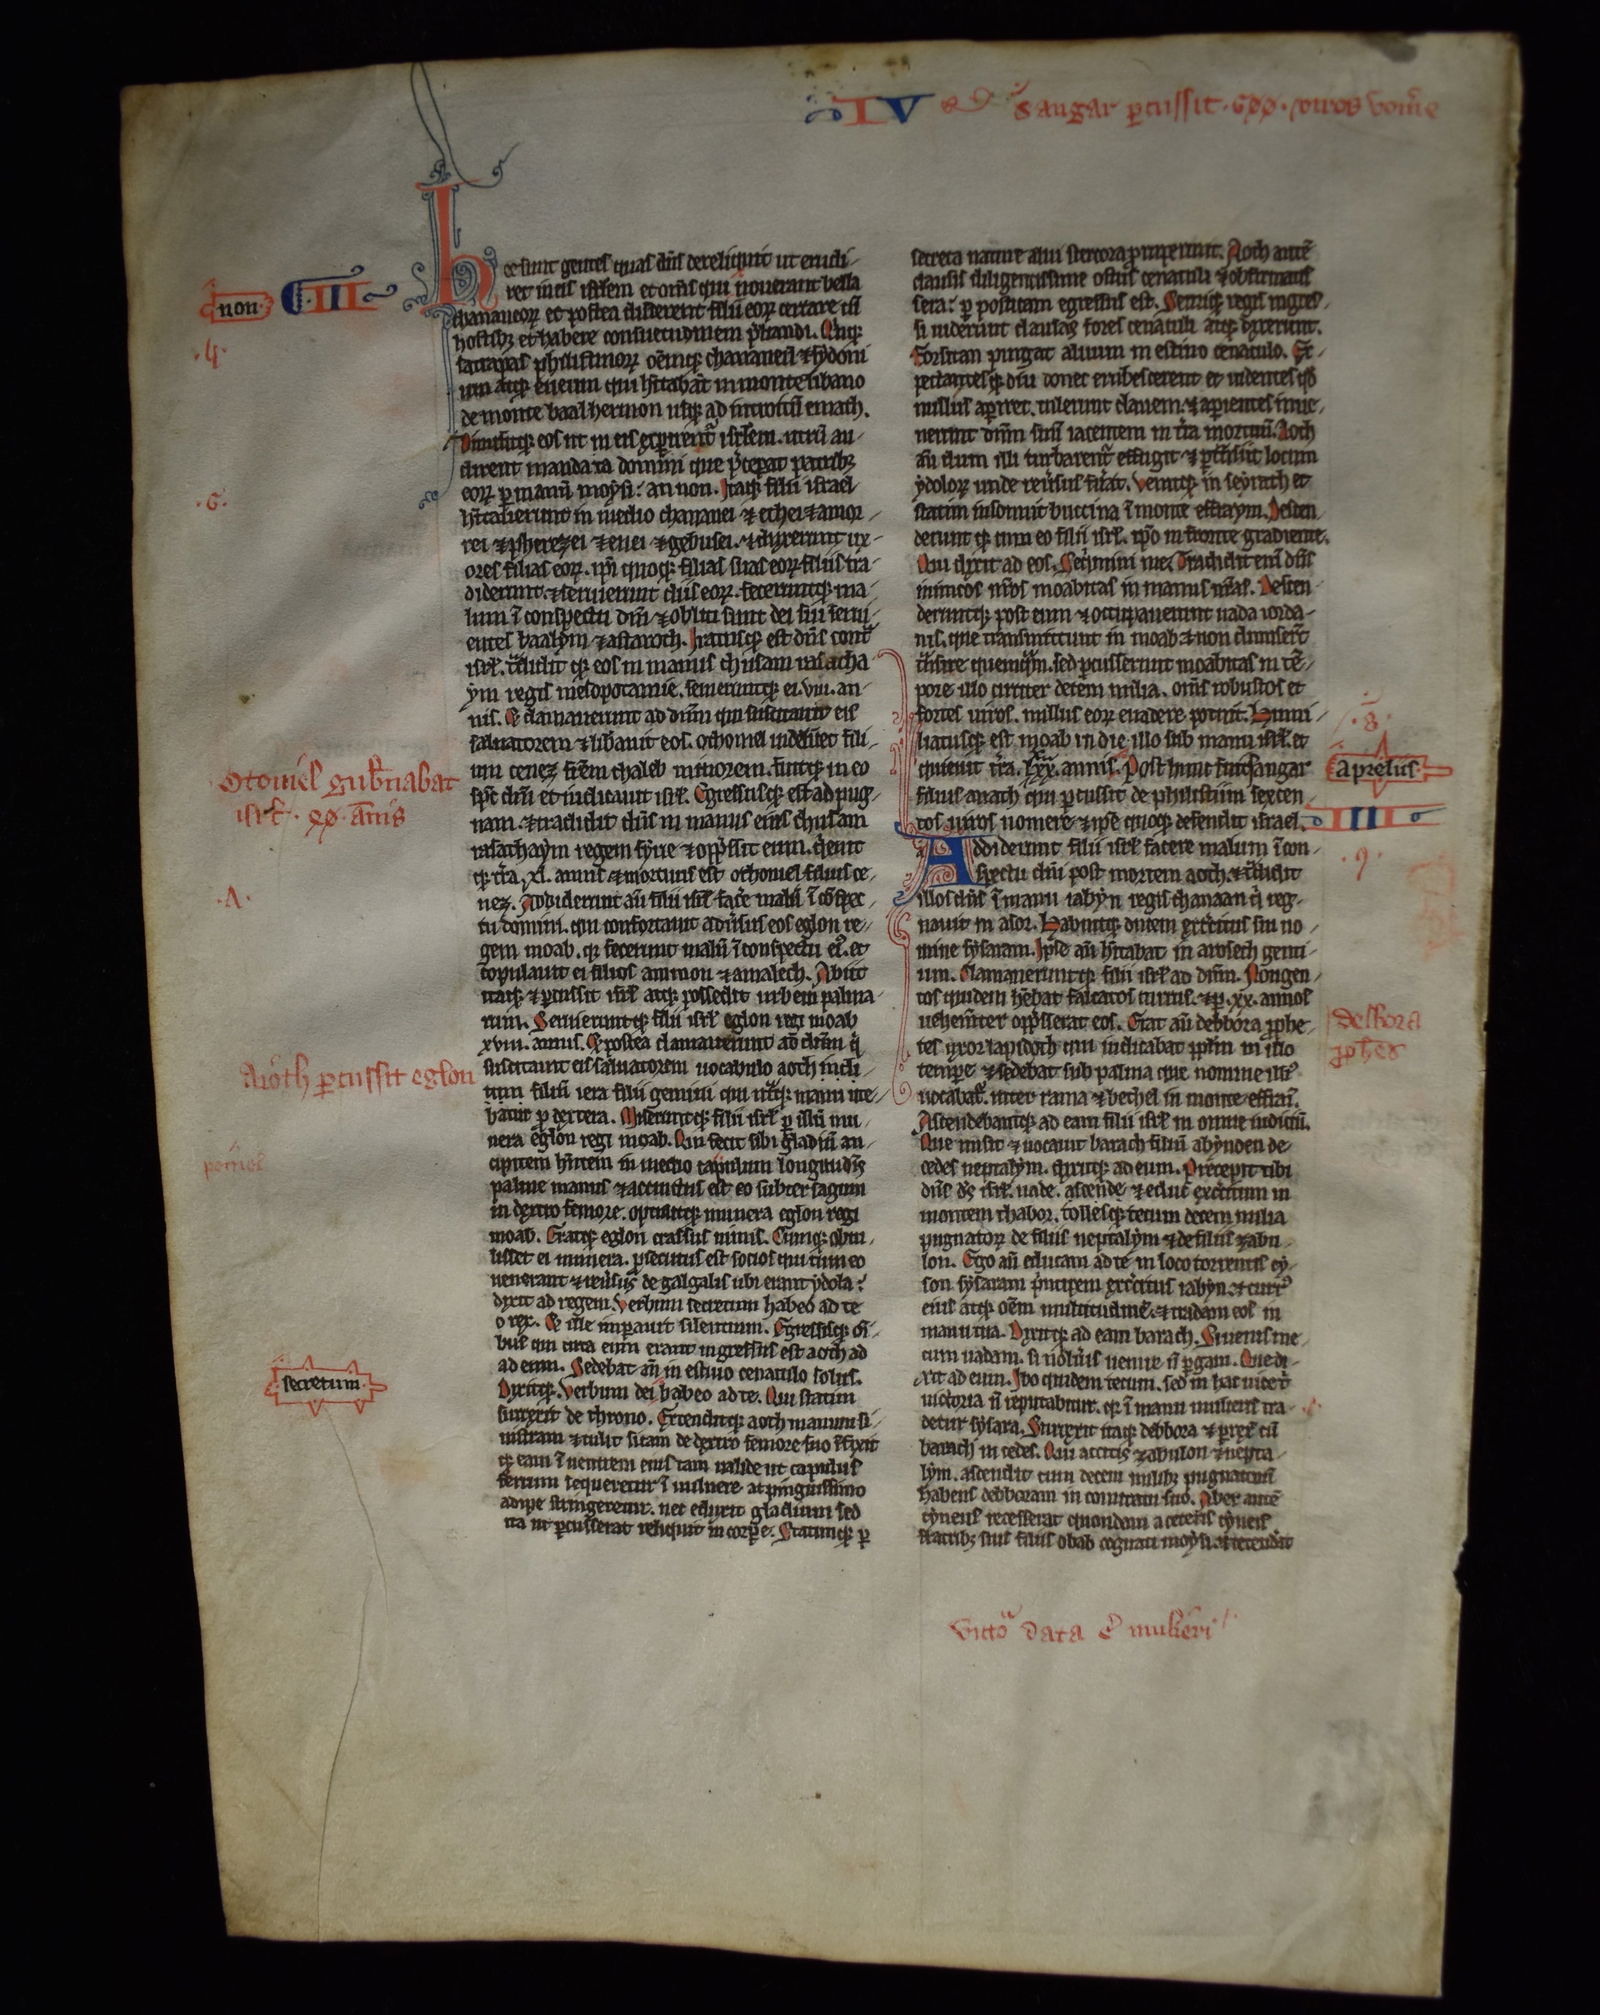 IV
Sangar percussit · 600 · viros vomere
non
C·III
hee sunt gentes quas dns dereliquit ut erudi-
ret in eis isrlem et oms qui nouerant bella
chananeorum et postea discerent filii eorum certare cum
hostibz et habere consuetudinem preliandi. Quinqz
satrapas philistinorum oemqz chananeum et sydoni
um atqz eueum qui hitabat in monte libano
de monte baal hermon usqz ad introitum emath.
Dimisitqz eos ut in eis experiretur isrlem. utrum au-
dirent mandata domini que preceperat patribz
eorum per manum moysi: an non. Itaqz filii israel
hitauerunt in medio chananei et ethei et amor-
rei et pherezei et euei et gebusei. et duxerunt ux-
ores filias eorum. ipi quoqz filias suas eorum filiis tra-
diderunt. et seruierunt diis eorum. feceruntqz ma-
lum in conspectu dni et obliti sunt dei sui serui-
entes baalym et astaroth. Iratusqz est dns contra
isrl. tradidit qz eos in manus chusam rasatha
ym regis mesopotamie. seruieruntqz ei .viii. an-
nis. Et clamauerunt ad dnm qui suscitauit eis
saluatorem et liberauit eos. othoniel uidelicet fili-
um cenez frem chaleb minorem. fuitqz in eo
spc dni et iudicauit isrl. Egressusqz est ad pug-
nam. et tradidit dns in manus eius chusam
rasathaym regem syrie et oppressit eum. quieuit
qz tra .xl. annis. et mortuus est othoniel filius ce-
nez. Addiderunt au filii isrl facere malum in conspec-
tu domini. qui confortauit aduersus eos eglon re-
gem moab. qz fecerunt malum in conspectu eius. et
copulauit ei filios ammon et amalech. Abiit
itaqz et percussit isrl atqz possedit urbem palma-
rum. Seruieruntqz filii isrl eglon regi moab
xviii. annis. Et postea clamauerunt ad dnm qui
suscitauit eis saluatorem uocabulo aoth incli-
tum filium iera filii gemini qui utraqz manu ute-
batur pro dextera. Miseruntqz filii isrl per illum mu-
nera eglon regi moab. Qui fecit sibi gladium an-
cipitem hntem in medio capulum longitudinis
palme manus et accinctus est eo subter sagum
in dextro femore. optulitqz munera eglon regi
moab. Eratqz eglon crassus nimis. Cumqz optu-
lisset ei munera. psecutus est socios qui cum eo
uenerant et reuersus de galgalis ubi erant ydola:
dixit ad regem. Verbum secretum habeo ad te
o rex. Et ille imperauit silentium. Egressisqz omi-
bus qui circa eum erant ingressus est aoth ad
ad eum. Sedebat au in estiuo cenaculo solus.
Dixitqz. Verbum dei habeo ad te. Qui statim
surrexit de throno. Extenditqz aoth manum si-
nistram et tulit sicam de dextro femore suo infixit
qz eam in uentrem eius tam ualide ut capulus
ferrum sequeretur in uulnere. at pinguissimo
adipe stringeretur. nec eduxit gladium sed
ita ut percusserat reliquit in corpore. Statimqz per
·4·
Otoniel gubernabat
isrl · 40 · annis
Aioth percussit eglon
secretum
secreta nature alui stercora proruperunt. Aoth aute
clausis diligentissime ostiis cenaculi et obfirmatis
sera: per posticam egressus est. Seruiqz regis ingres-
si uiderunt clausas fores cenaculi atqz dixerunt.
Forsitan purgat aluum in estiuo cenaculo. Ex-
pectantesqz diu donec erubescerent et uidentes quod
nullus aperiret. tulerunt clauem. et aperientes inue-
nerunt dnm suum iacentem in tra mortuum. Aoth
au dum illi turbarentur effugit et pertransiit locum
ydolorum unde reuersus fuerat. Venitqz in seyrath et
statim insonuit buccina in monte effraym. Descen-
derunt qz cum eo filii isrl. ipo in fronte gradiente.
Qui dixit ad eos. Sequimini me. Tradidit eni dns
inimicos nros moabitas in manus nras. Descen-
deruntqz post eum et occupauerunt uada iorda-
nis. que transmittunt in moab et non dimiserunt
transire quemquam. sed percusserunt moabitas in tem-
pore illo circiter decem milia. oms robustos et
fortes uiros. nullus eorum euadere potuit. Humi-
liatusqz est moab in die illo sub manu isrl. et
quieuit tra. lxxx. annis. Post hunc fuit sangar
filius anath qui percussit de philistiim sexcen
tos uiros uomere et ipse quoqz defendit israel.
Addiderunt filii isrl facere malum in con-
spectu dni post mortem aoth. et tradidit
illos dns in manu iabyn regis chanaan qui reg-
nauit in asor. Habuitqz ducem exercitus sui no-
mine sysaram. Ipse au hitabat in aroseth genti-
um. Clamaueruntqz filii isrl ad dnm. Nongen-
tos quidem hebat falcatos currus. et per .xx. annos
uehementer oppresserat eos. Erat au debbora prophe-
tes uxor lapidoth que iudicabat pplm in illo
tempore et sedebat sub palma que nomine illius
uocabatur. inter rama et bethel in monte effraim.
Ascendebantqz ad eam filii isrl in omne iudicium.
Que misit et uocauit barach filium abynoen de
cedes neptalym. dixitqz ad eum. Precepit tibi
dns ds isrl. uade. ascende et educ exercitum in
montem thabor. tollesqz tecum decem milia
pugnatorum de filiis neptalym et de filiis zabu-
lon. Ego au educam ad te in loco torrentis cy-
son sysaram principem exercitus iabyn. et currus
eius atqz oem multitudinem. et tradam eos in
manu tua. Dixitqz ad eam barach. Si uenis me
cum uadam. si nolueris uenire non pergam. Que di-
xit ad eum. Ibo quidem tecum. sed in hac uice
uictoria non reputabitur. qz in manu mulieris tra
detur sysara. Surrexit itaqz debbora et perrexit cum
barach in cedes. Qui accitis zabulon et nepta-
lym. ascendit cum decem milibz pugnatorum
habens debboram in comitatu suo. Aber aute
cyneus recesserat quondam a ceteris cyneis
fratribz suis filiis obab cognati moysi. et tetendit
·8·
aprelus
IIII
·9·
delbora
prophes
victoria data est mulieri